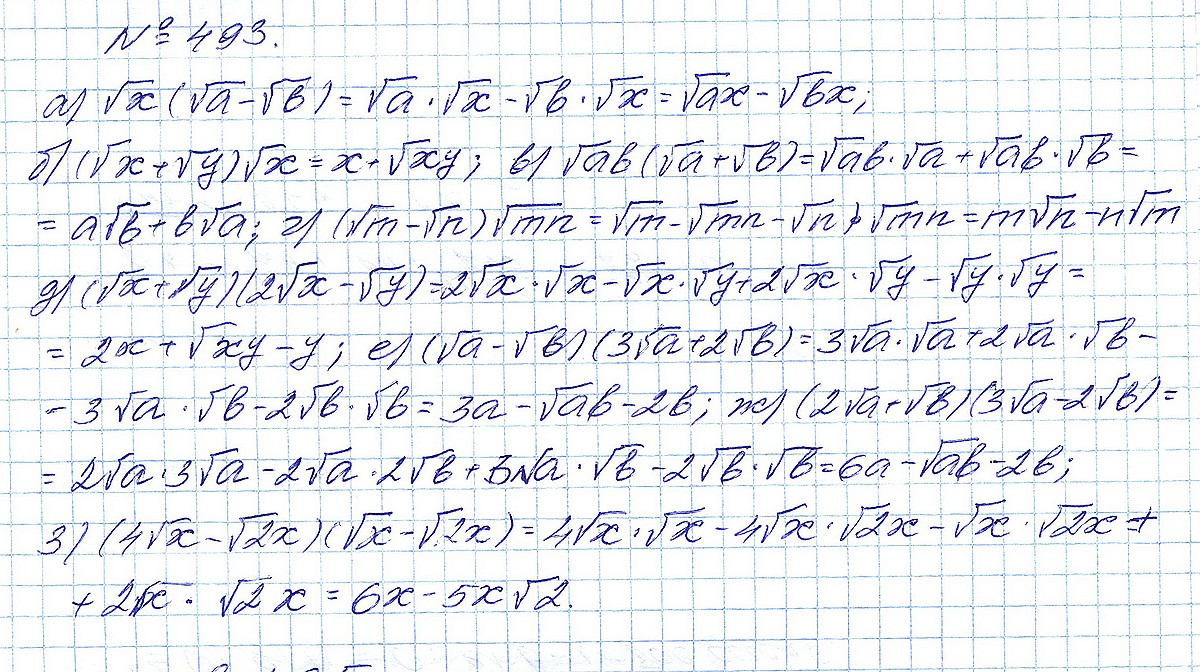 № 493.
а) √x (√a - √b) = √a · √x - √b · √x = √ax - √bx;
б) (√x + √y) √x = x + √xy; в) √ab (√a + √b) = √ab · √a + √ab · √b =
= a√b + b√a; г) (√m - √n) √mn = √m - √mn - √n · √mn = m√n - n√m
д) (√x + √y)(2√x - √y) = 2√x · √x - √x · √y + 2√x · √y - √y · √y =
= 2x + √xy - y; е) (√a - √b) (3√a + 2√b) = 3√a · √a + 2√a · √b -
- 3√a · √b - 2√b · √b = 3a - √ab - 2b; ж) (2√a + √b)(3√a - 2√b) =
= 2√a · 3√a - 2√a · 2√b + 3√a · √b - 2√b · √b = 6a - √ab - 2b;
з) (4√x - √2x) (√x - √2x) = 4√x · √x - 4√x · √2x - √x · √2x +
+ 2√x · √2x = 6x - 5x√2.